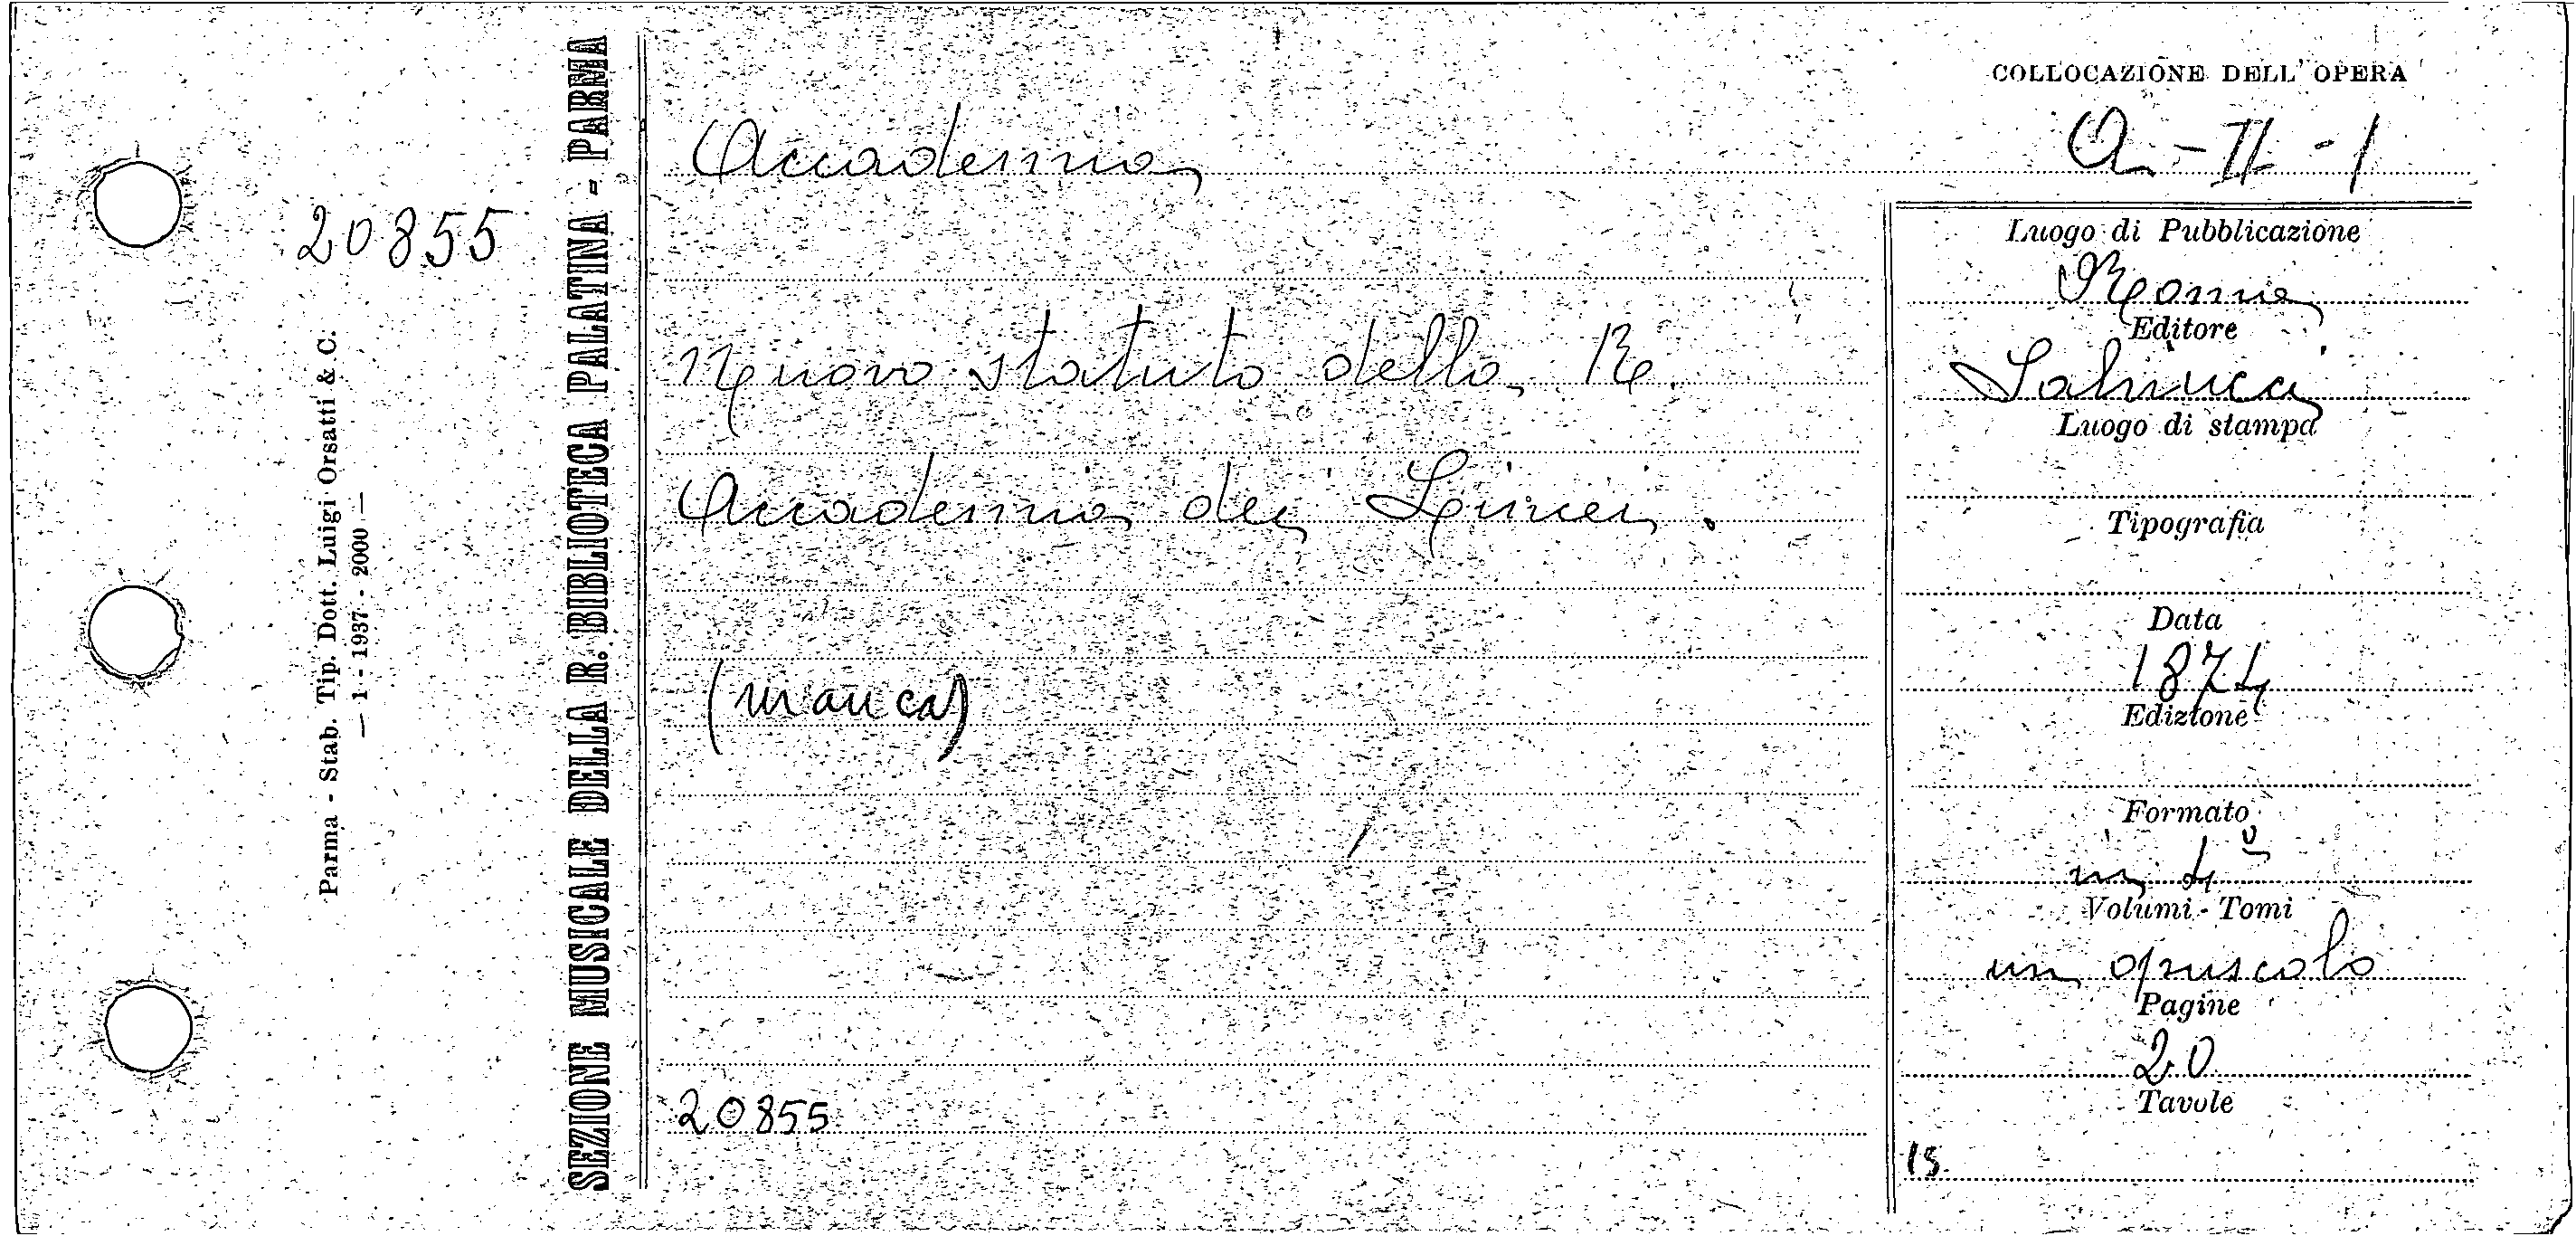 COLLOCAZIONE DELL' OPERA
Accademia
A - II - 1
20855
Luogo di Pubblicazione
Roma
Editore
Salviucci
Luogo di stampa
Tipografia
Data
1874
Edizione
Formato
in 4º
Volumi - Tomi
un opuscolo
Pagine
20
Tavole
15
Nuovo statuto della R.
Accademia dei Lincei.
(manca)
20855
SEZIONE MUSICALE DELLA R. BIBLIOTECA PALATINA - PARMA
Parma - Stab. Tip. Dott. Luigi Orsatti & C.
— 1 - 1937 - 2000 —